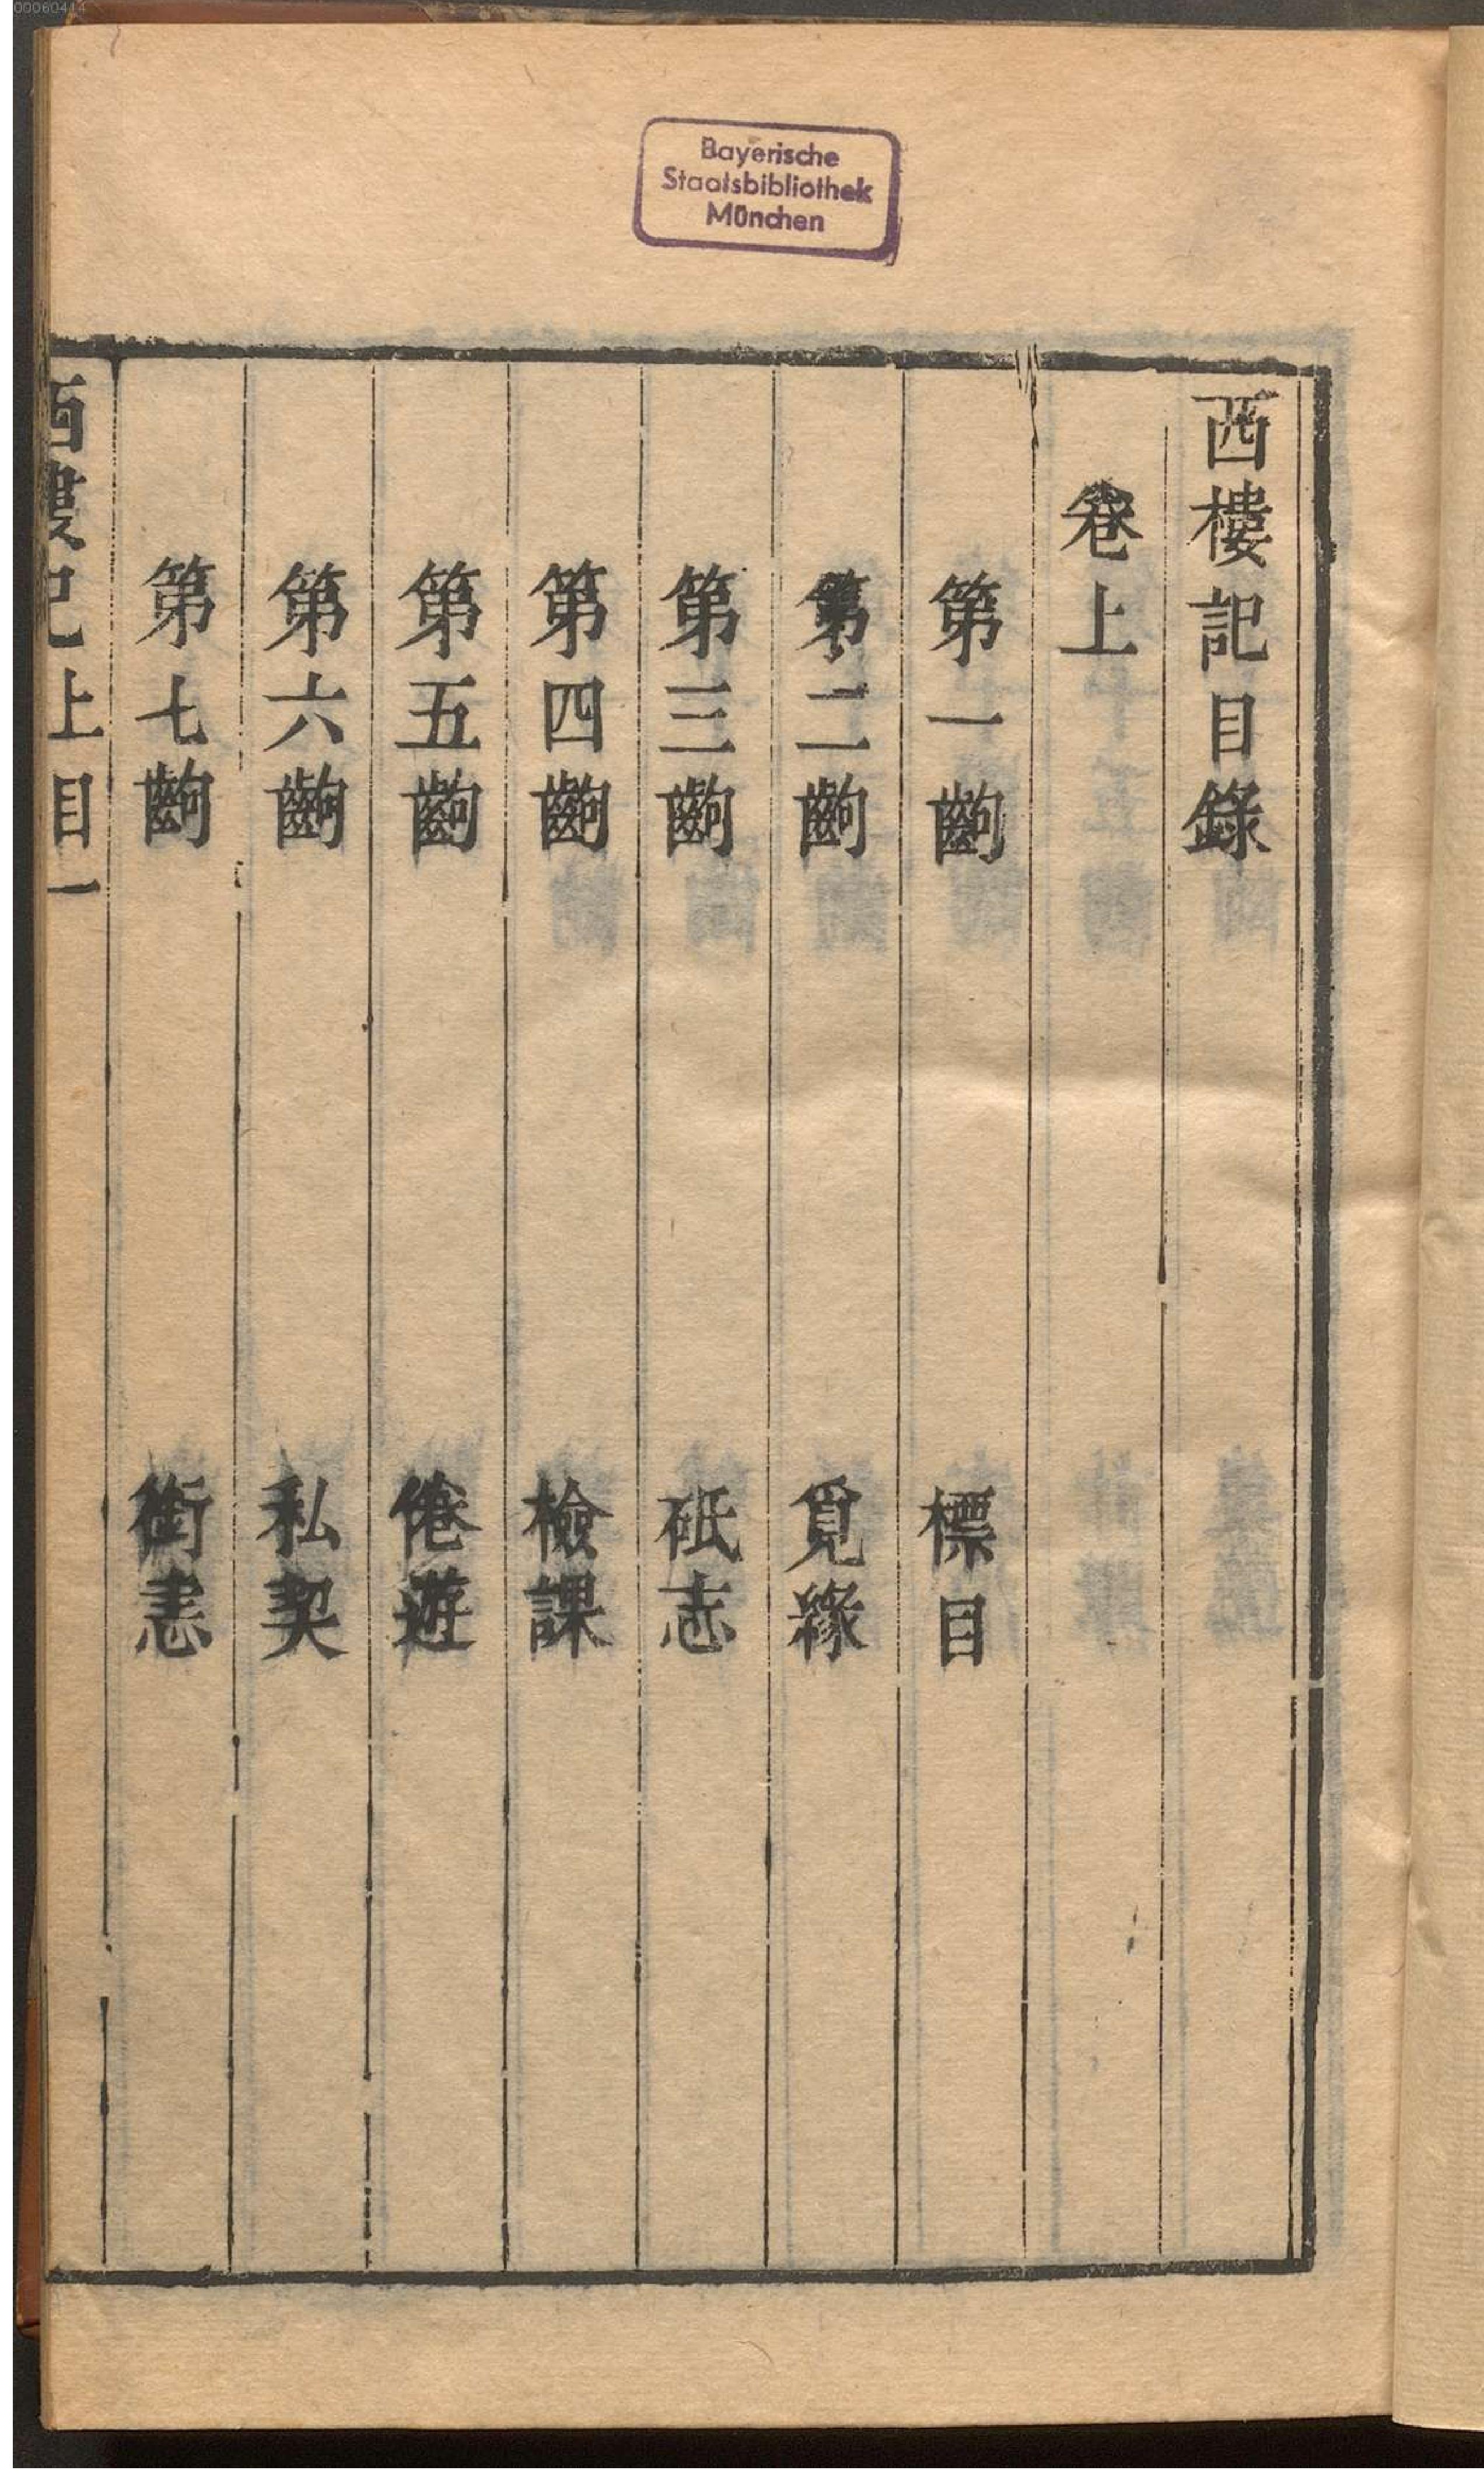 00060414
Bayerische
Staatsbibliothek
München
西樓記目錄
卷上
第一齣 標目
第二齣 覓緣
第三齣 砥志
第四齣 檢課
第五齣 倦遊
第六齣 私契
第七齣 銜恚
西樓記上目一